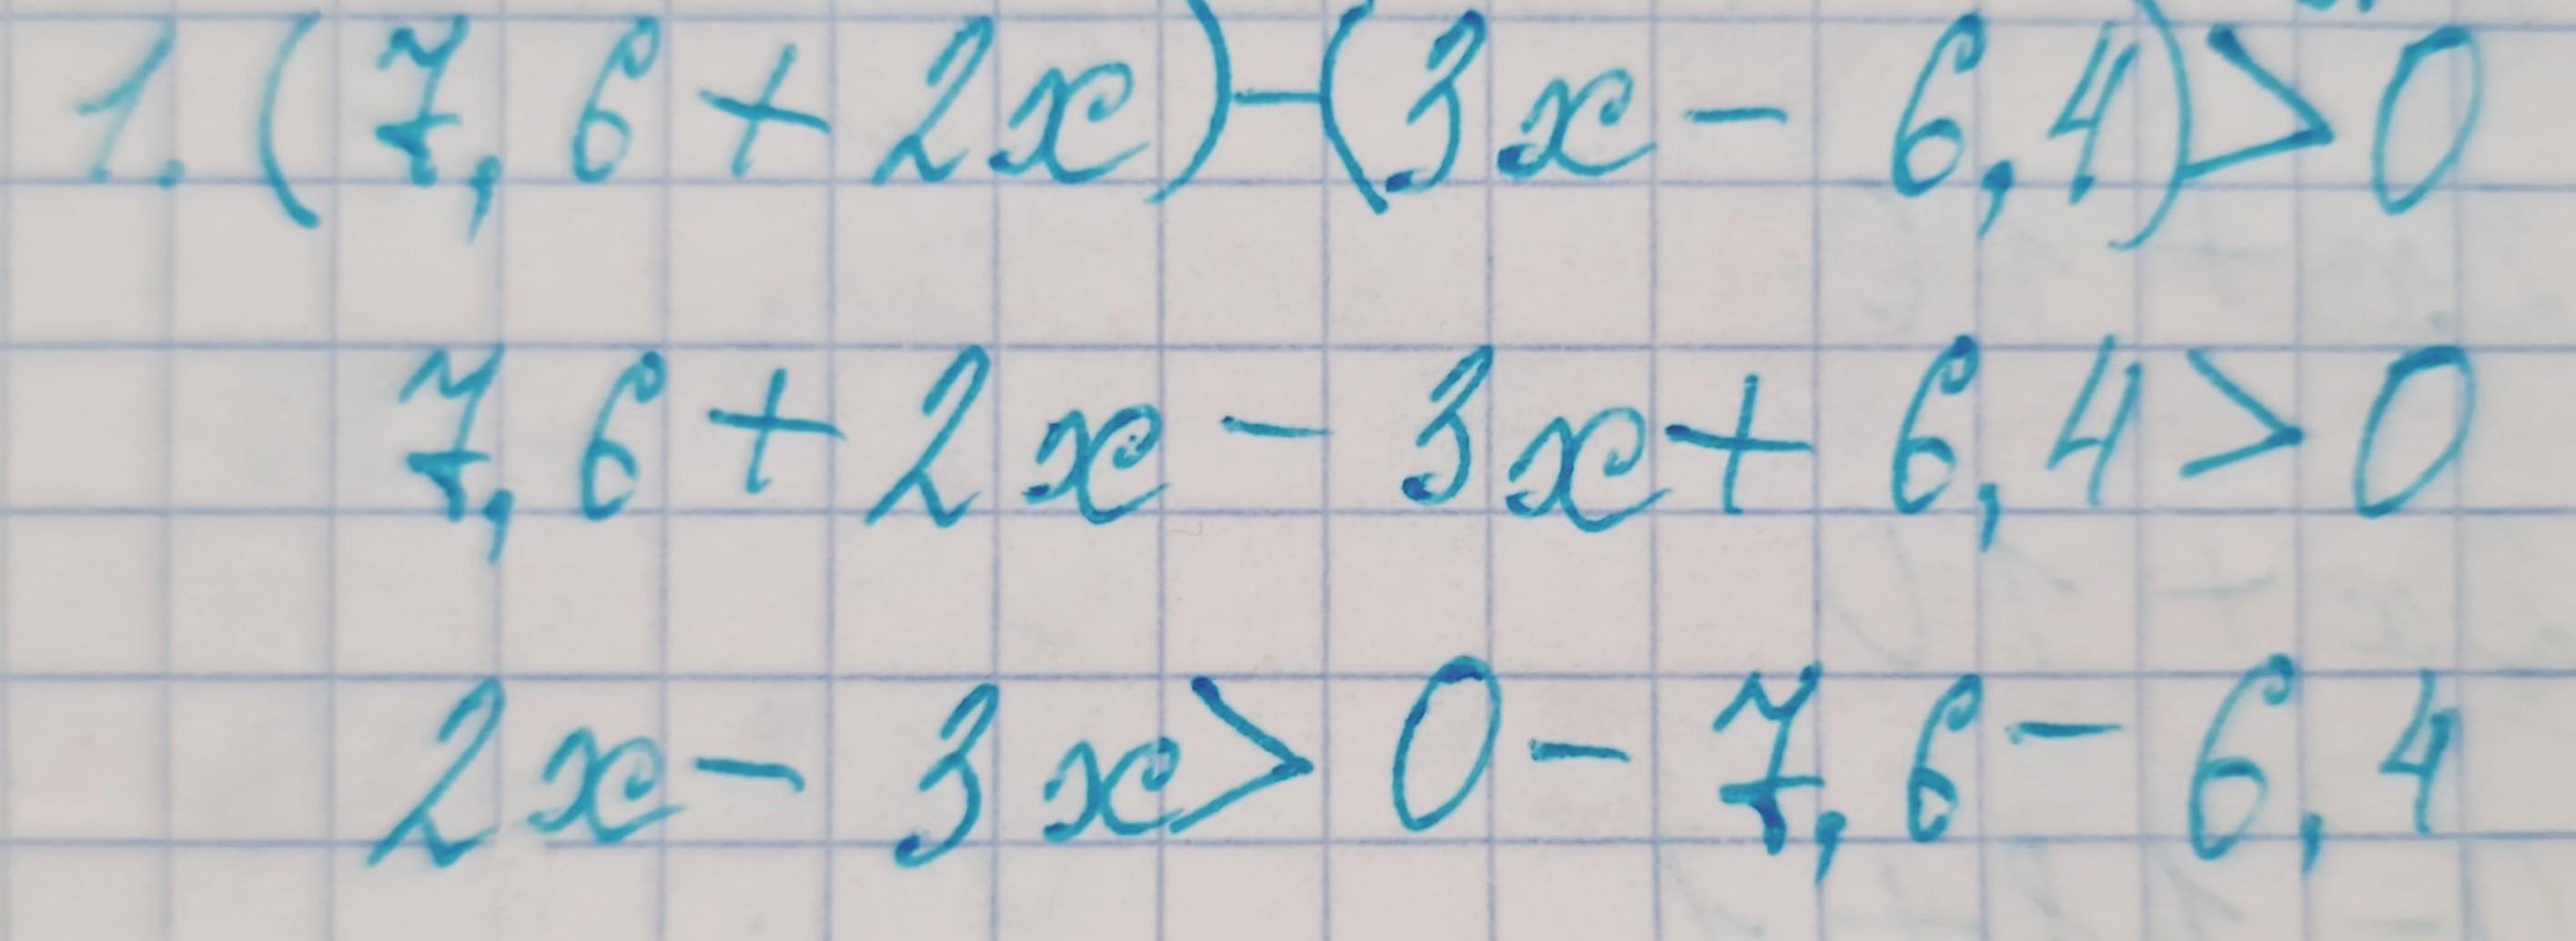 1. (7,6 + 2x) - (3x - 6,4) > 0
7,6 + 2x - 3x + 6,4 > 0
2x - 3x > 0 - 7,6 - 6,4